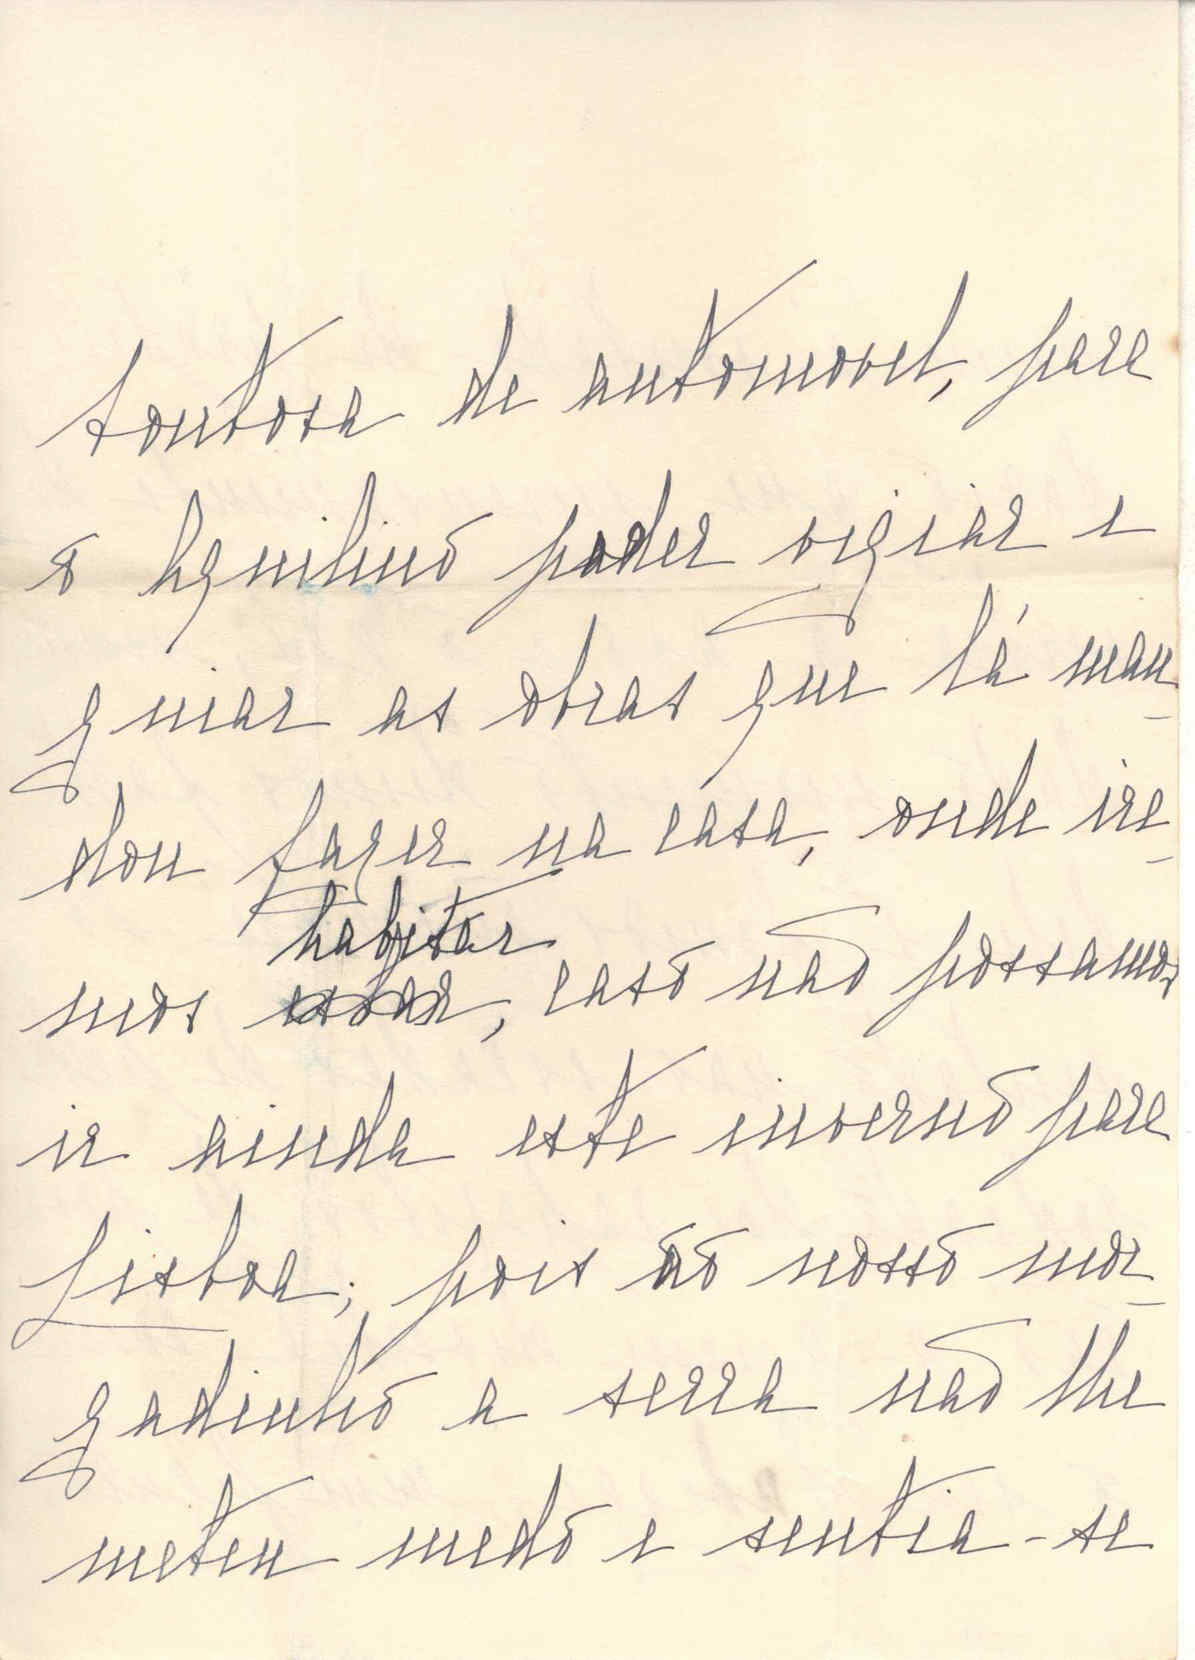 Soutosa de automovel, para
o Aquilino poder vigiar e
guiar as obras que lá man-
dou fazer na casa, onde ire-
habitar
mos estar, caso não possamos
ir ainda este inverno para
Lisboa; pois ao nosso mor-
gadinho a serra não lhe
meteu medo e sentia-se